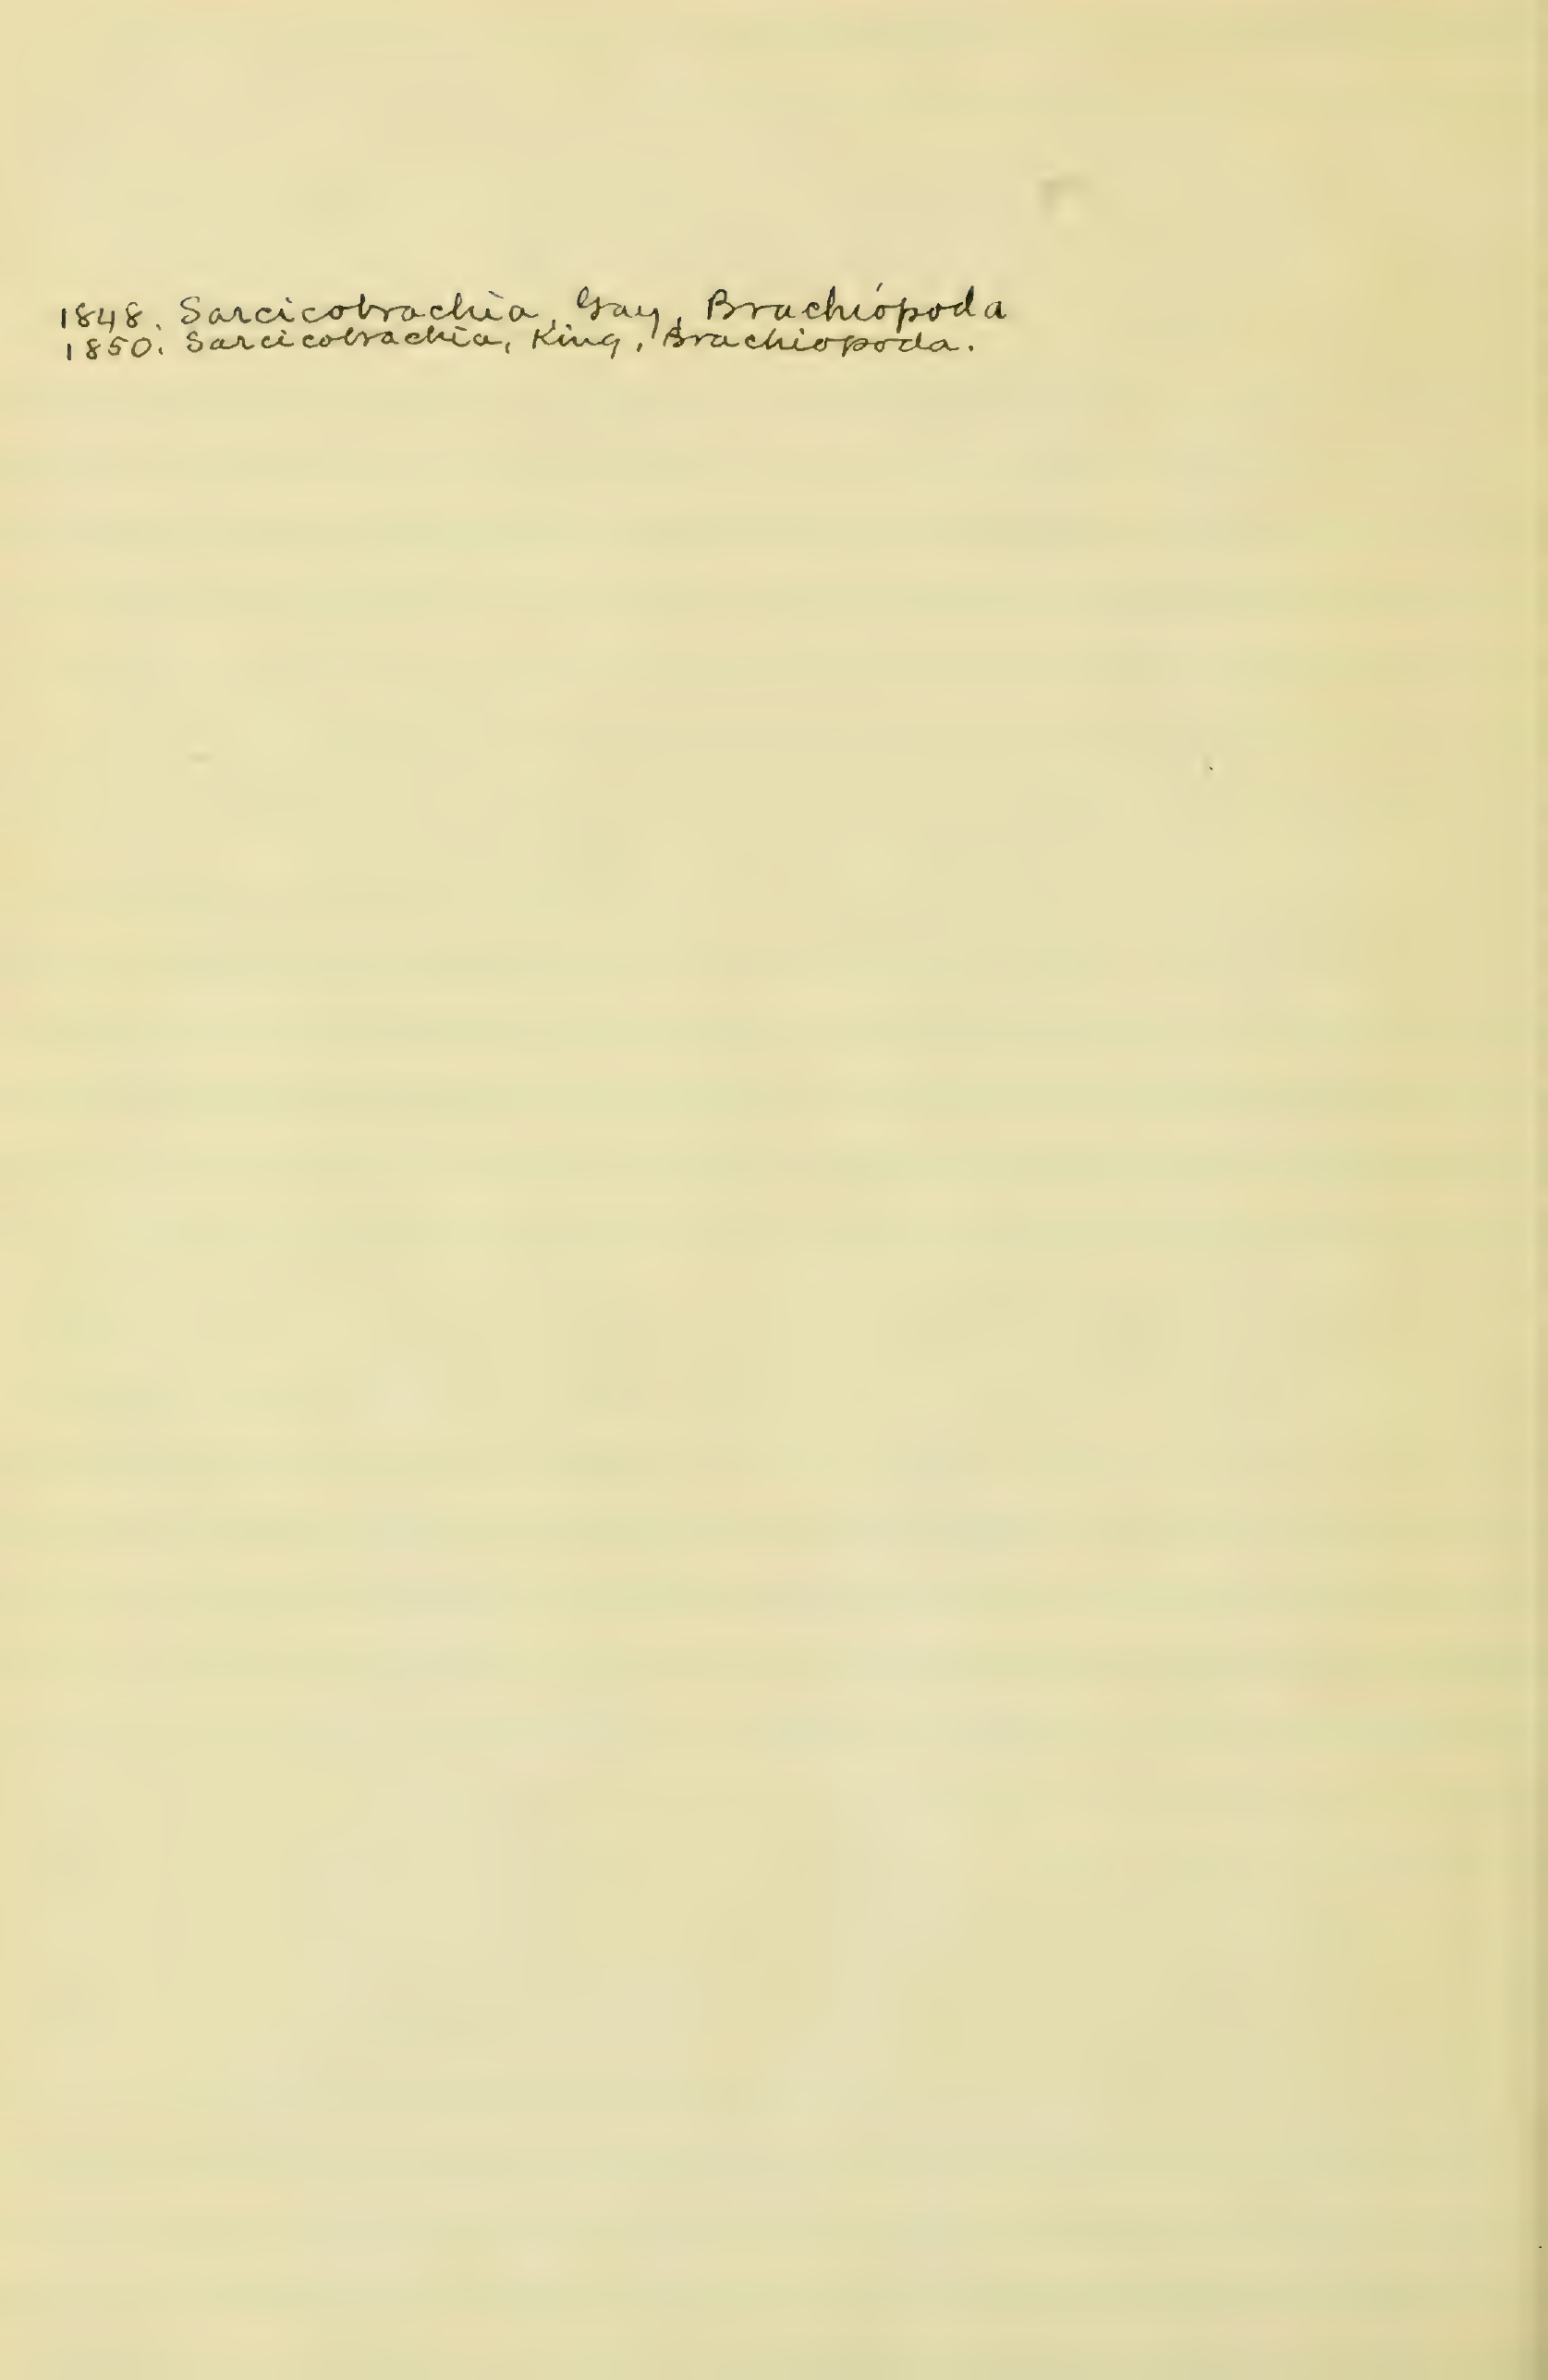 1848. Sarcicobrachia, Gay, Brachiopoda
1850. Sarcicobrachia, King, Brachiopoda.